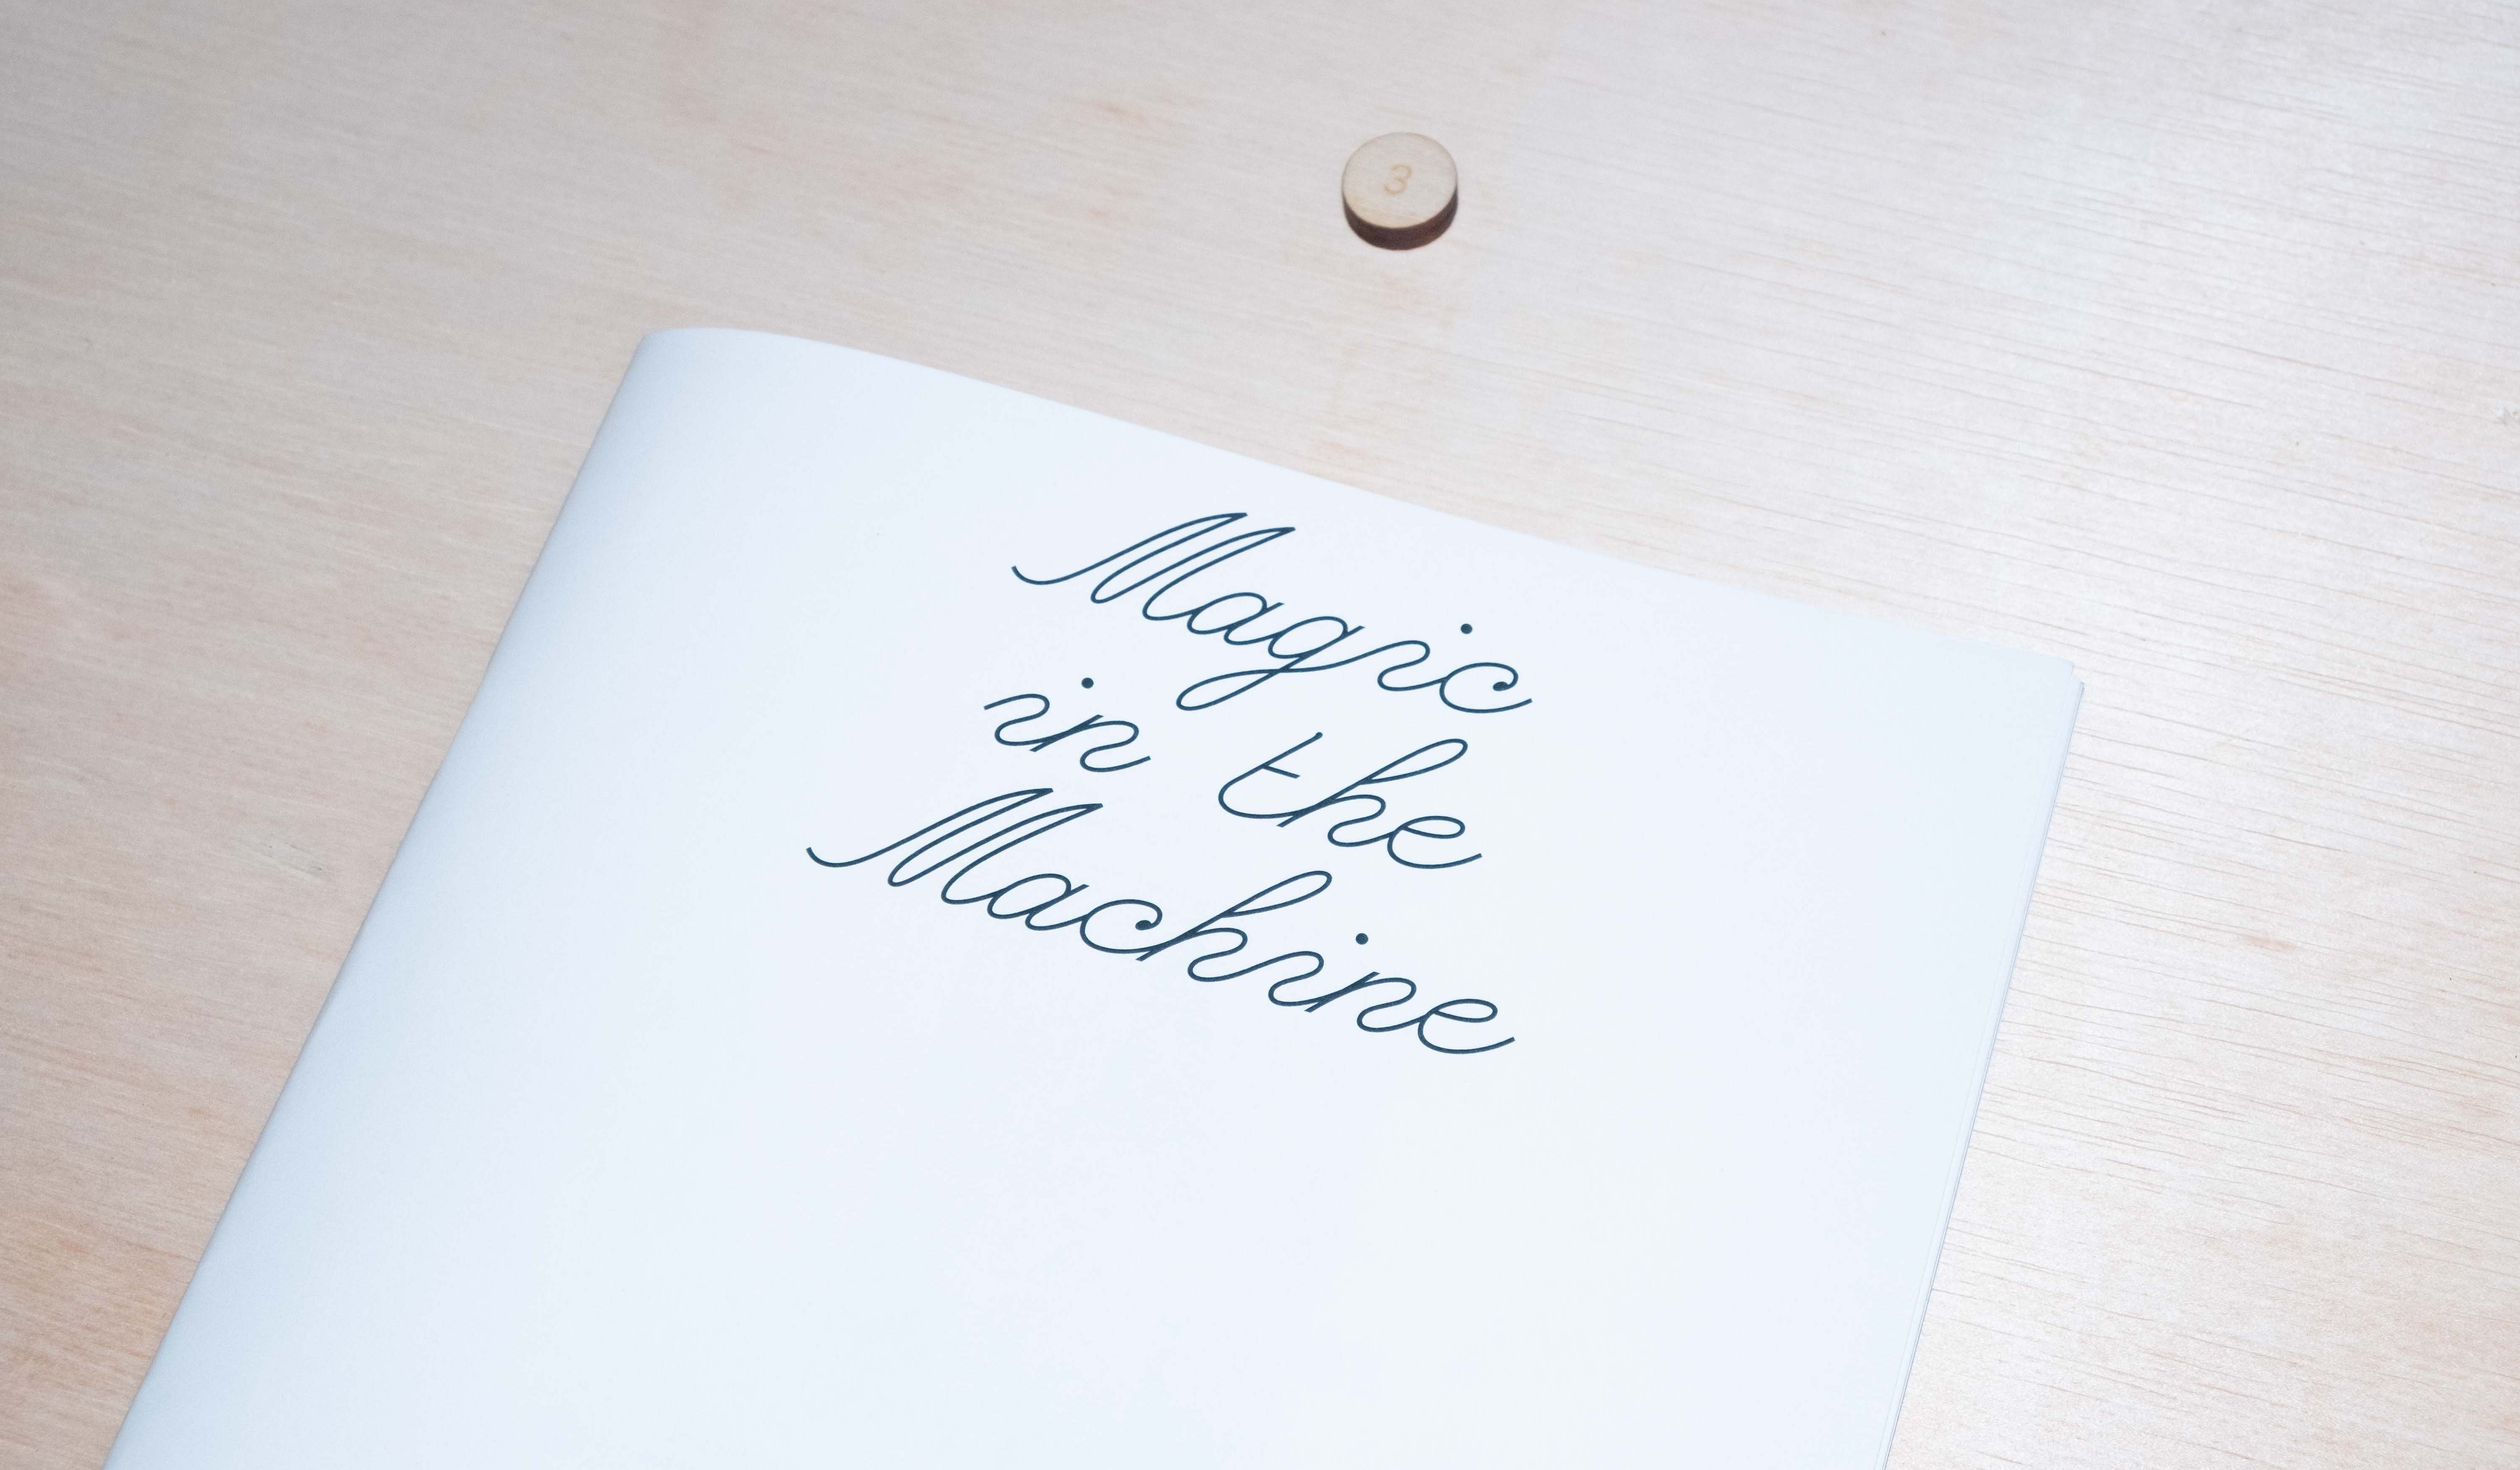 3
Magic
in the
Machine